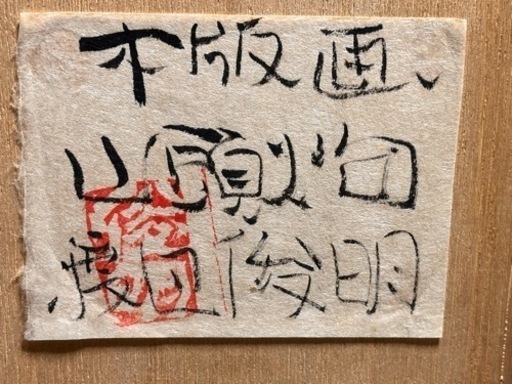 木版画、
山頭火句
渡辺俊明